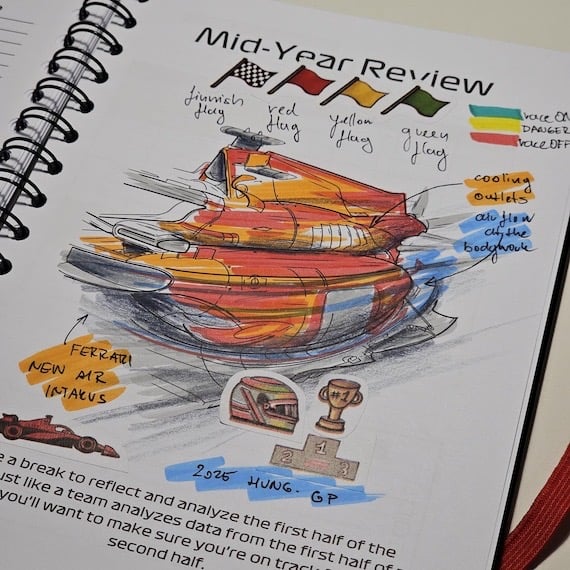 Mid-Year Review
finnish flag
red flag
yellow flag
green flag
race ON
DANGER
race OFF
cooling
outlets
air flow
on the
bodywork
FERRARI
NEW AIR
INTAKES
#1
1
2 3
2025 HUNG. GP
e a break to reflect and analyze the first half of the
ust like a team analyzes data from the first half of
you'll want to make sure you're on track
second half.